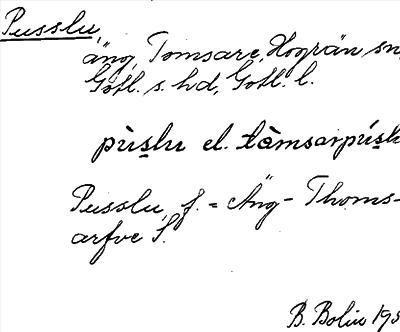 Pusslu,
äng, Tomsare, Hogrän sn,
Gotl. s. hd, Gotl. l.
pùs̱lu el. tàmsarpús̱lu
Pusslu, f. = Äng - Thoms-
arfve S.
B. Bolin 193